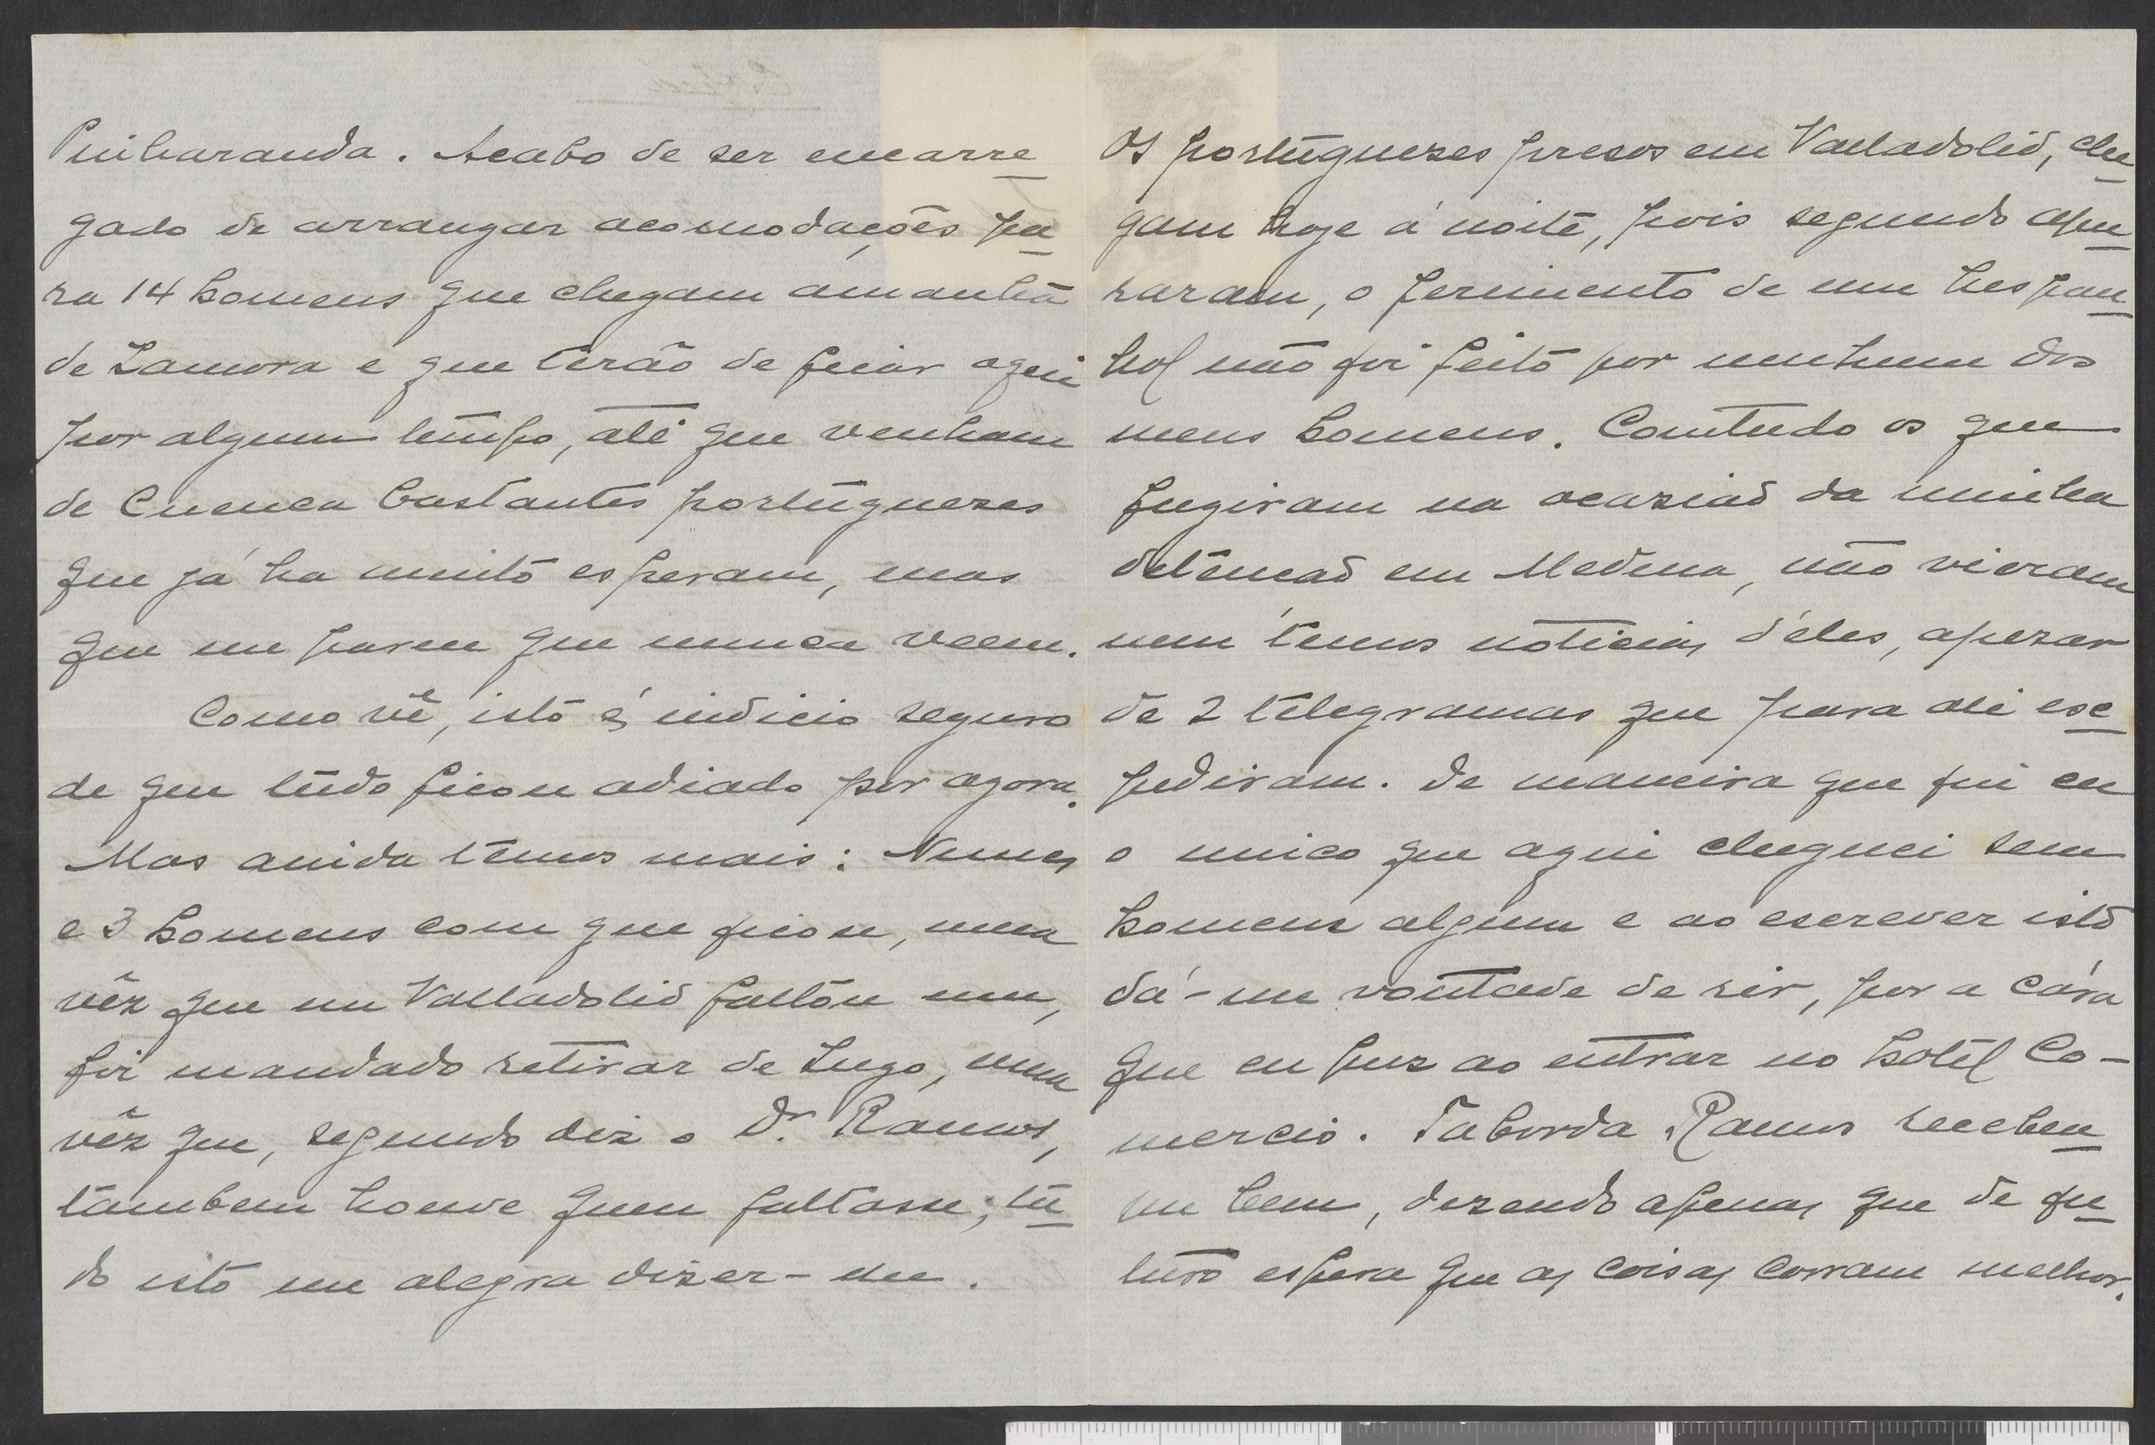 Pinharanda. Acabo de ser encarre
gado de arranzar acomodações pa
ra 14 homens que chegam amanhã
de Zamora e que terão de ficar aqui
por algum tempo, até que venham
de Cuenca bastantes portuguezes
que já ha muito esperam, mas
que me parece que nunca veem.
Como vê, isto é indicio seguro
de que tudo ficou adiado por agora.
Mas ainda temos mais: Nunes
e 3 homens com que ficou, uma
vêz que em Valladolid faltou um,
foi mandado retirar de Lugo, uma
vêz que, segundo diz o Dr. Ramos,
tambem houve quem faltasse; tu
do isto me alegra dizer-
Os portuguezes presos em Valladolid, che
gam hoje á noite, pois segundo apu
raram, o ferimento de um hespan
hol não foi feito por nenhum dos
meus homens. Comtudo os que
fugiram na ocazião da minha
detencão em Medina, não vieram
nem temos noticias d'eles, apezar
de 2 telegramas que para ali esc
pediram. De maneira que fui eu
o unico que aqui cheguei sem
homem algum e ao escrever isto
dá-me vontade de rir, por a cára
que eu puz ao entrar no hotel Co-
mercio. Taborda Ramos recebeu
me bem, dezendo apenas que de fu
turo espera que as coisas corram melhor.